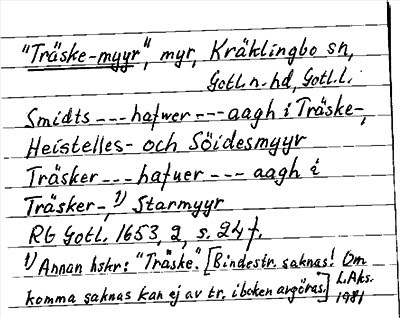 "Träske-myyr", myr, Kräklingbo sn,
Gotl. n. hd, Gotl. l.
Smidts --- hafwer --- aagh i Träske-,
Heistelles- och Söidesmyyr
Träsker --- hafuer --- aagh i
Träsker-, 1) Starmyyr
RG Gotl. 1653, 2, s. 24 f.
1) Annan hskr: "Träske". [Bindestr. saknas! Om
komma saknas kan ej av tr. i boken avgöras.] L. Aks.
1981